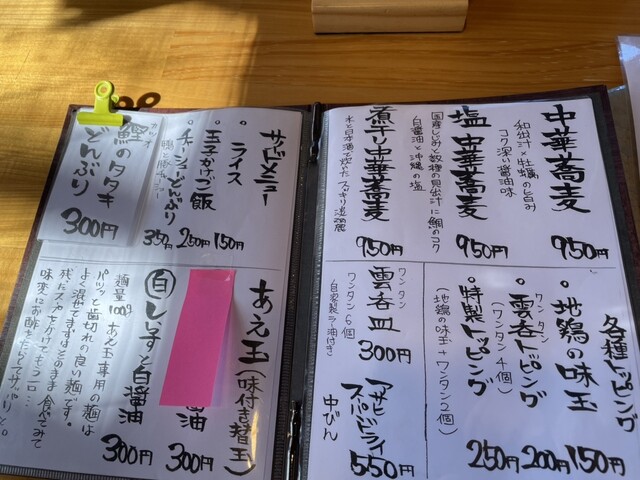 中華蕎麦
和出汁×牡蠣の旨み
コク深い醤油味
950円
塩中華蕎麦
国産しじみと数種の貝出汁に鯛のコク
白醤油と沖縄の塩
950円
煮干中華蕎麦
水と日本酒で炊いたスッキリ淡麗
950円
各種トッピング
・地鶏の味玉
150円
・雲呑トッピング
ワンタン
(ワンタン4個)
200円
・特製トッピング
(地鶏の味玉+ワンタン2個)
250円
雲呑皿
ワンタン
ワンタン6個
自家製ラー油付き
300円
アサヒ
スーパードライ
中びん
550円
サイドメニュー
・ライス
150円
・玉子かけご飯
250円
・チャーシューどんぶり
350円
鰹のタタキ
どんぶり
300円
あえ玉(味付き替玉)
油
300円
白しらすと白醤油
300円
麺量100g あえ玉専用の麺は
パツッと歯切れの良い麺です。
よく混ぜてまずはそのまま食べてみて
味変にお酢をたらしてサッパリと。